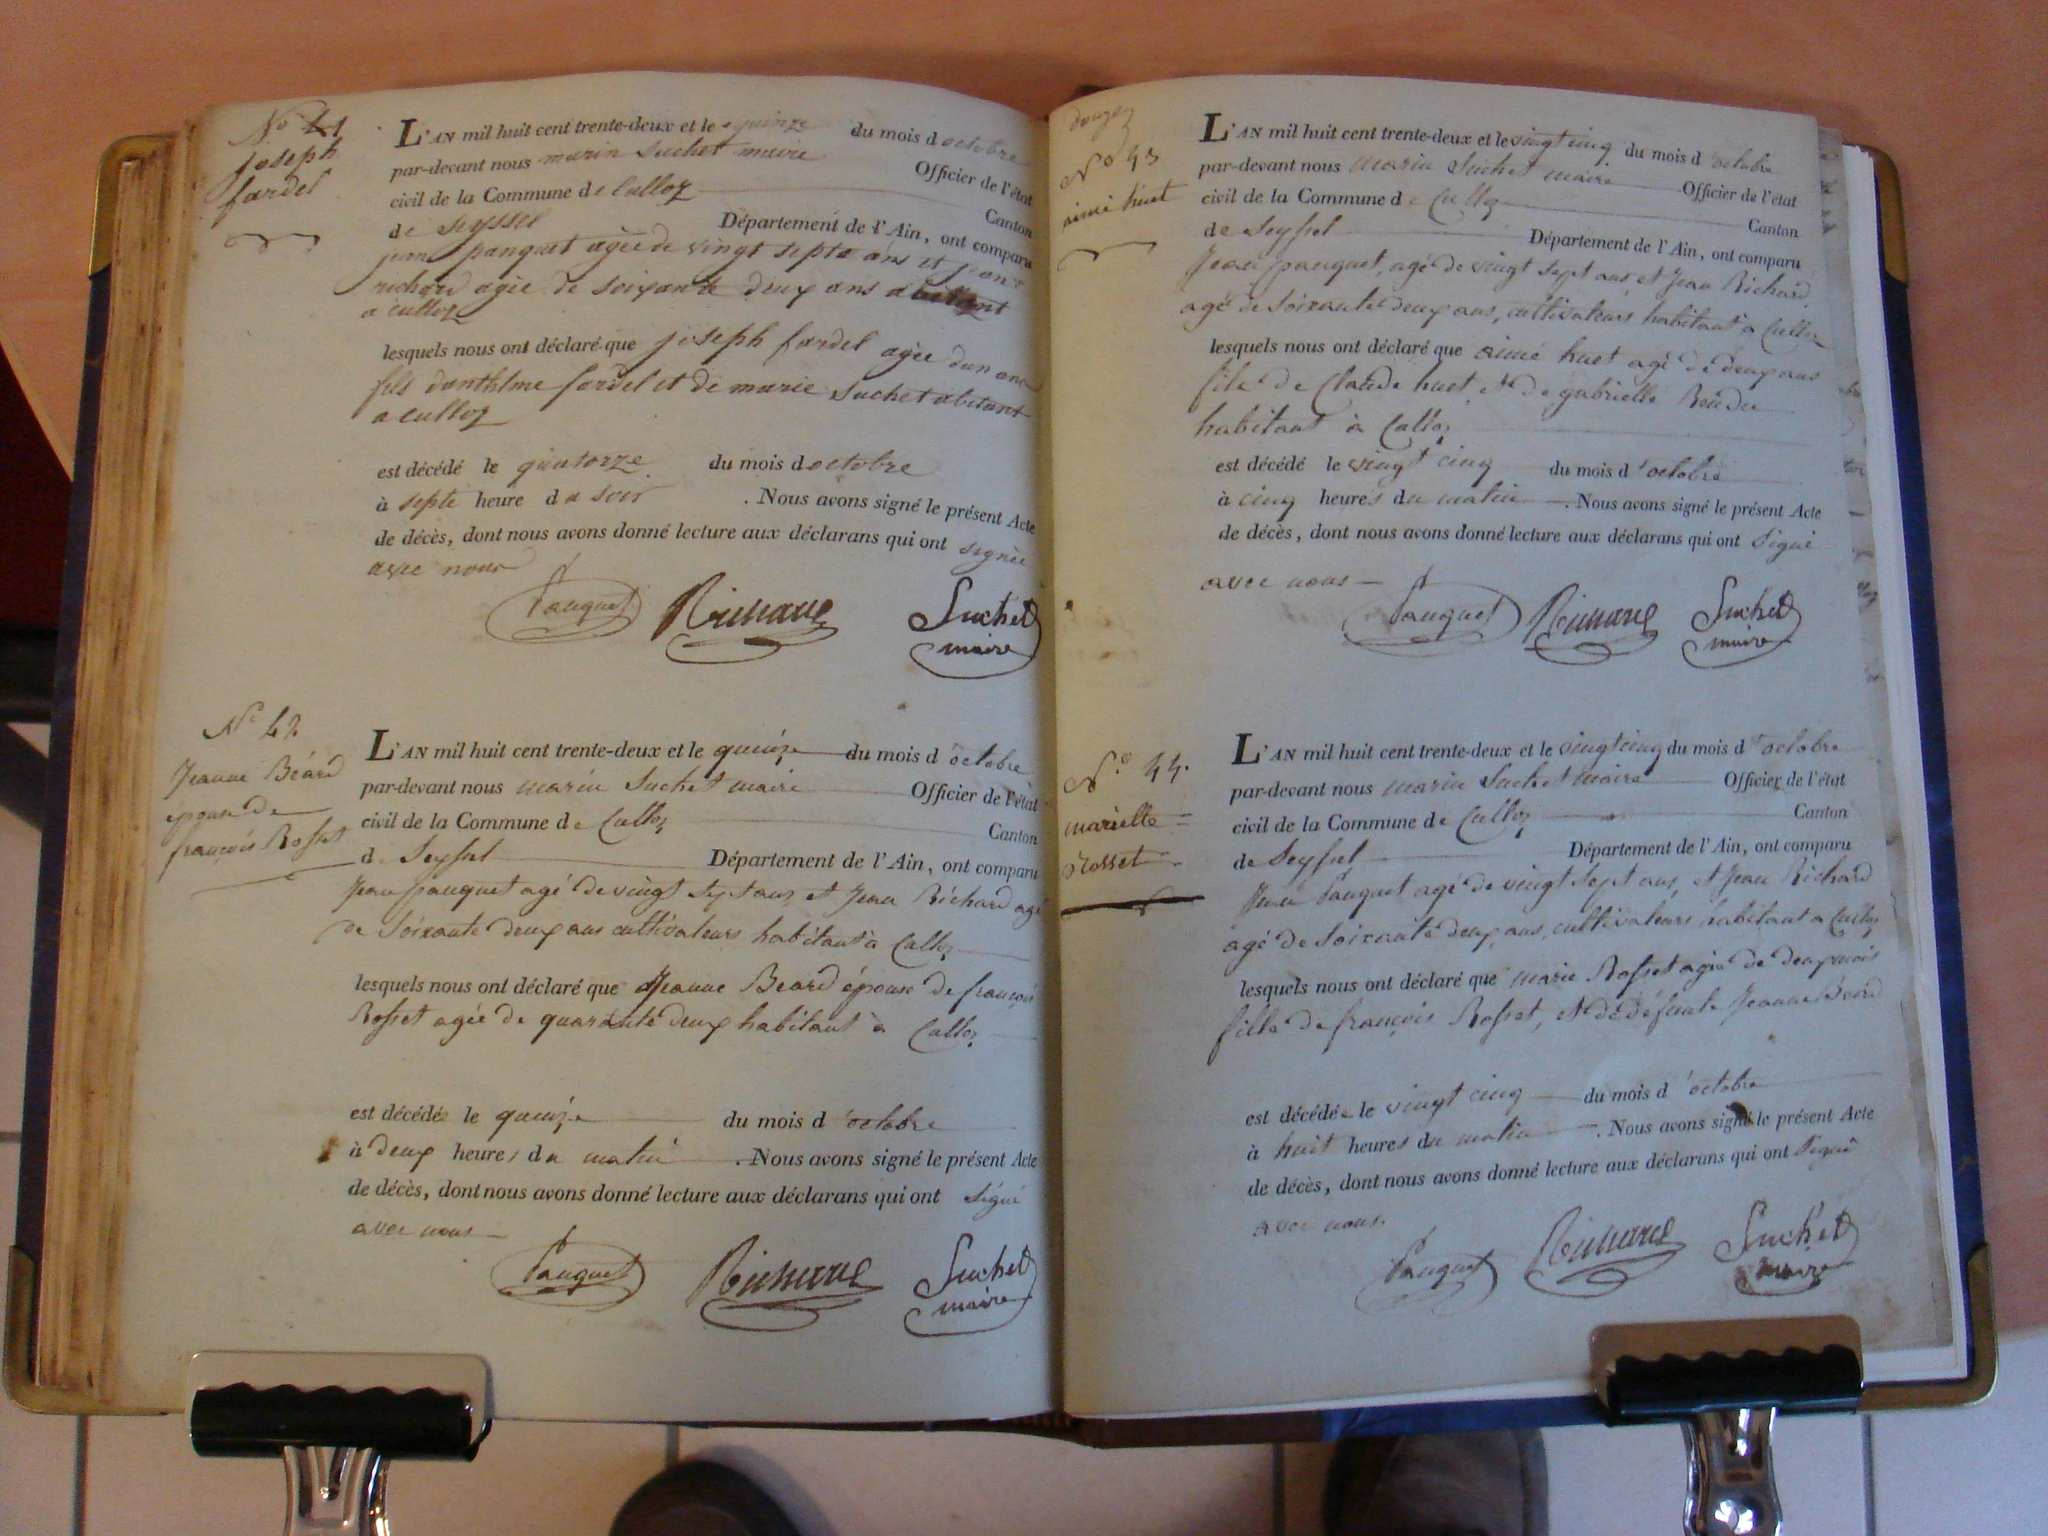 No 41
joseph
fardel
L'AN mil huit cent trente-deux et le quinze du mois d octobre
par-devant nous marin suchet maire Officier de l'état
civil de la Commune de Culloz Canton
de seyssel Département de l'Ain, ont comparu
jean panquet agée de vingt septe ans et jean
richard agée de soixante deux ans abitant
a culloz
lesquels nous ont déclaré que joseph fardel agée dun ans
fils danthlme fardel et de marie suchet abitant
a culloz
est décédé le quatorze du mois d octobre
à septe heure du soir . Nous avons signé le présent Acte
de décès, dont nous avons donné lecture aux déclarans qui ont signée
avec nous
Pauquet Richard Suchet
maire
No 42
Jeanne Béard
épouse de
françois Rosset
L'AN mil huit cent trente-deux et le quinze du mois d'octobre
par-devant nous marin Suchet maire Officier de l'état
civil de la Commune de Culloz Canton
de Seyssel Département de l'Ain, ont comparu
Jean pauquet agé de vingt sept ans et Jean Richard agé
de Soixante deux ans cultivateurs habitant à Culloz
lesquels nous ont déclaré que Jeanne Beard épouse de françois
Rosset agée de quarante deux habitant à Culloz
est décédée le quinze du mois d'octobre
à deux heures du matin . Nous avons signé le présent Acte
de décès, dont nous avons donné lecture aux déclarans qui ont Signé
avec nous
Pauquet Richard Suchet
maire
douze
No 43
aimé huet
L'AN mil huit cent trente-deux et le vingt cinq du mois d'octobre
par-devant nous marin Suchet maire Officier de l'état
civil de la Commune de Culloz Canton
de Seyssel Département de l'Ain, ont comparu
Jean pauquet, agé de vingt sept ans et Jean Richard
agé de Soixante deux ans, cultivateurs habitant à Culloz
lesquels nous ont déclaré que aimé huet agé de deux ans
fils de Claude huet, et de gabrielle
habitant à Culloz
est décédé le vingt cinq du mois d'octobre
à cinq heures du matin . Nous avons signé le présent Acte
de décès, dont nous avons donné lecture aux déclarans qui ont Signé
avec nous
Pauquet Richard Suchet
maire
No 44.
mariette
Rosset
L'AN mil huit cent trente-deux et le vingt cinq du mois d'octobre
par-devant nous marin Suchet maire Officier de l'état
civil de la Commune de Culloz Canton
de Seyssel Département de l'Ain, ont comparu
Jean Pauquet agé de vingt sept ans, et Jean Richard
agé de Soixante deux ans, cultivateurs habitant à Culloz
lesquels nous ont déclaré que marie Rosset agée de deux mois
fille de françois Rosset, et de défunte Jeanne Béard
est décédée le vingt cinq du mois d'octobre
à huit heures du matin . Nous avons signé le présent Acte
de décès, dont nous avons donné lecture aux déclarans qui ont Signé
avec nous.
Pauquet Richard Suchet
maire